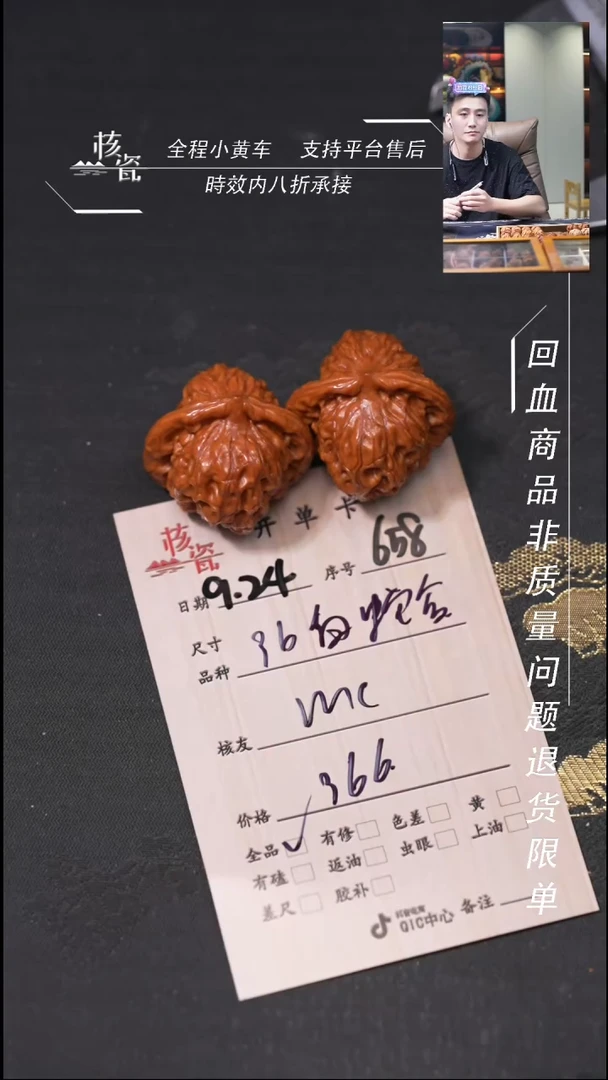 核瓷
全程小黄车 支持平台售后
時效内八折承接
回血商品非质量问题退货限单
核瓷
开单卡
日期 9.24 序号 658
尺寸
品种 36
核友 mc
价格 366.
全品 ✓ 有修 色差 黄
有磕 返油 虫眼 上油
差尺 胶补
QIC中心 备注